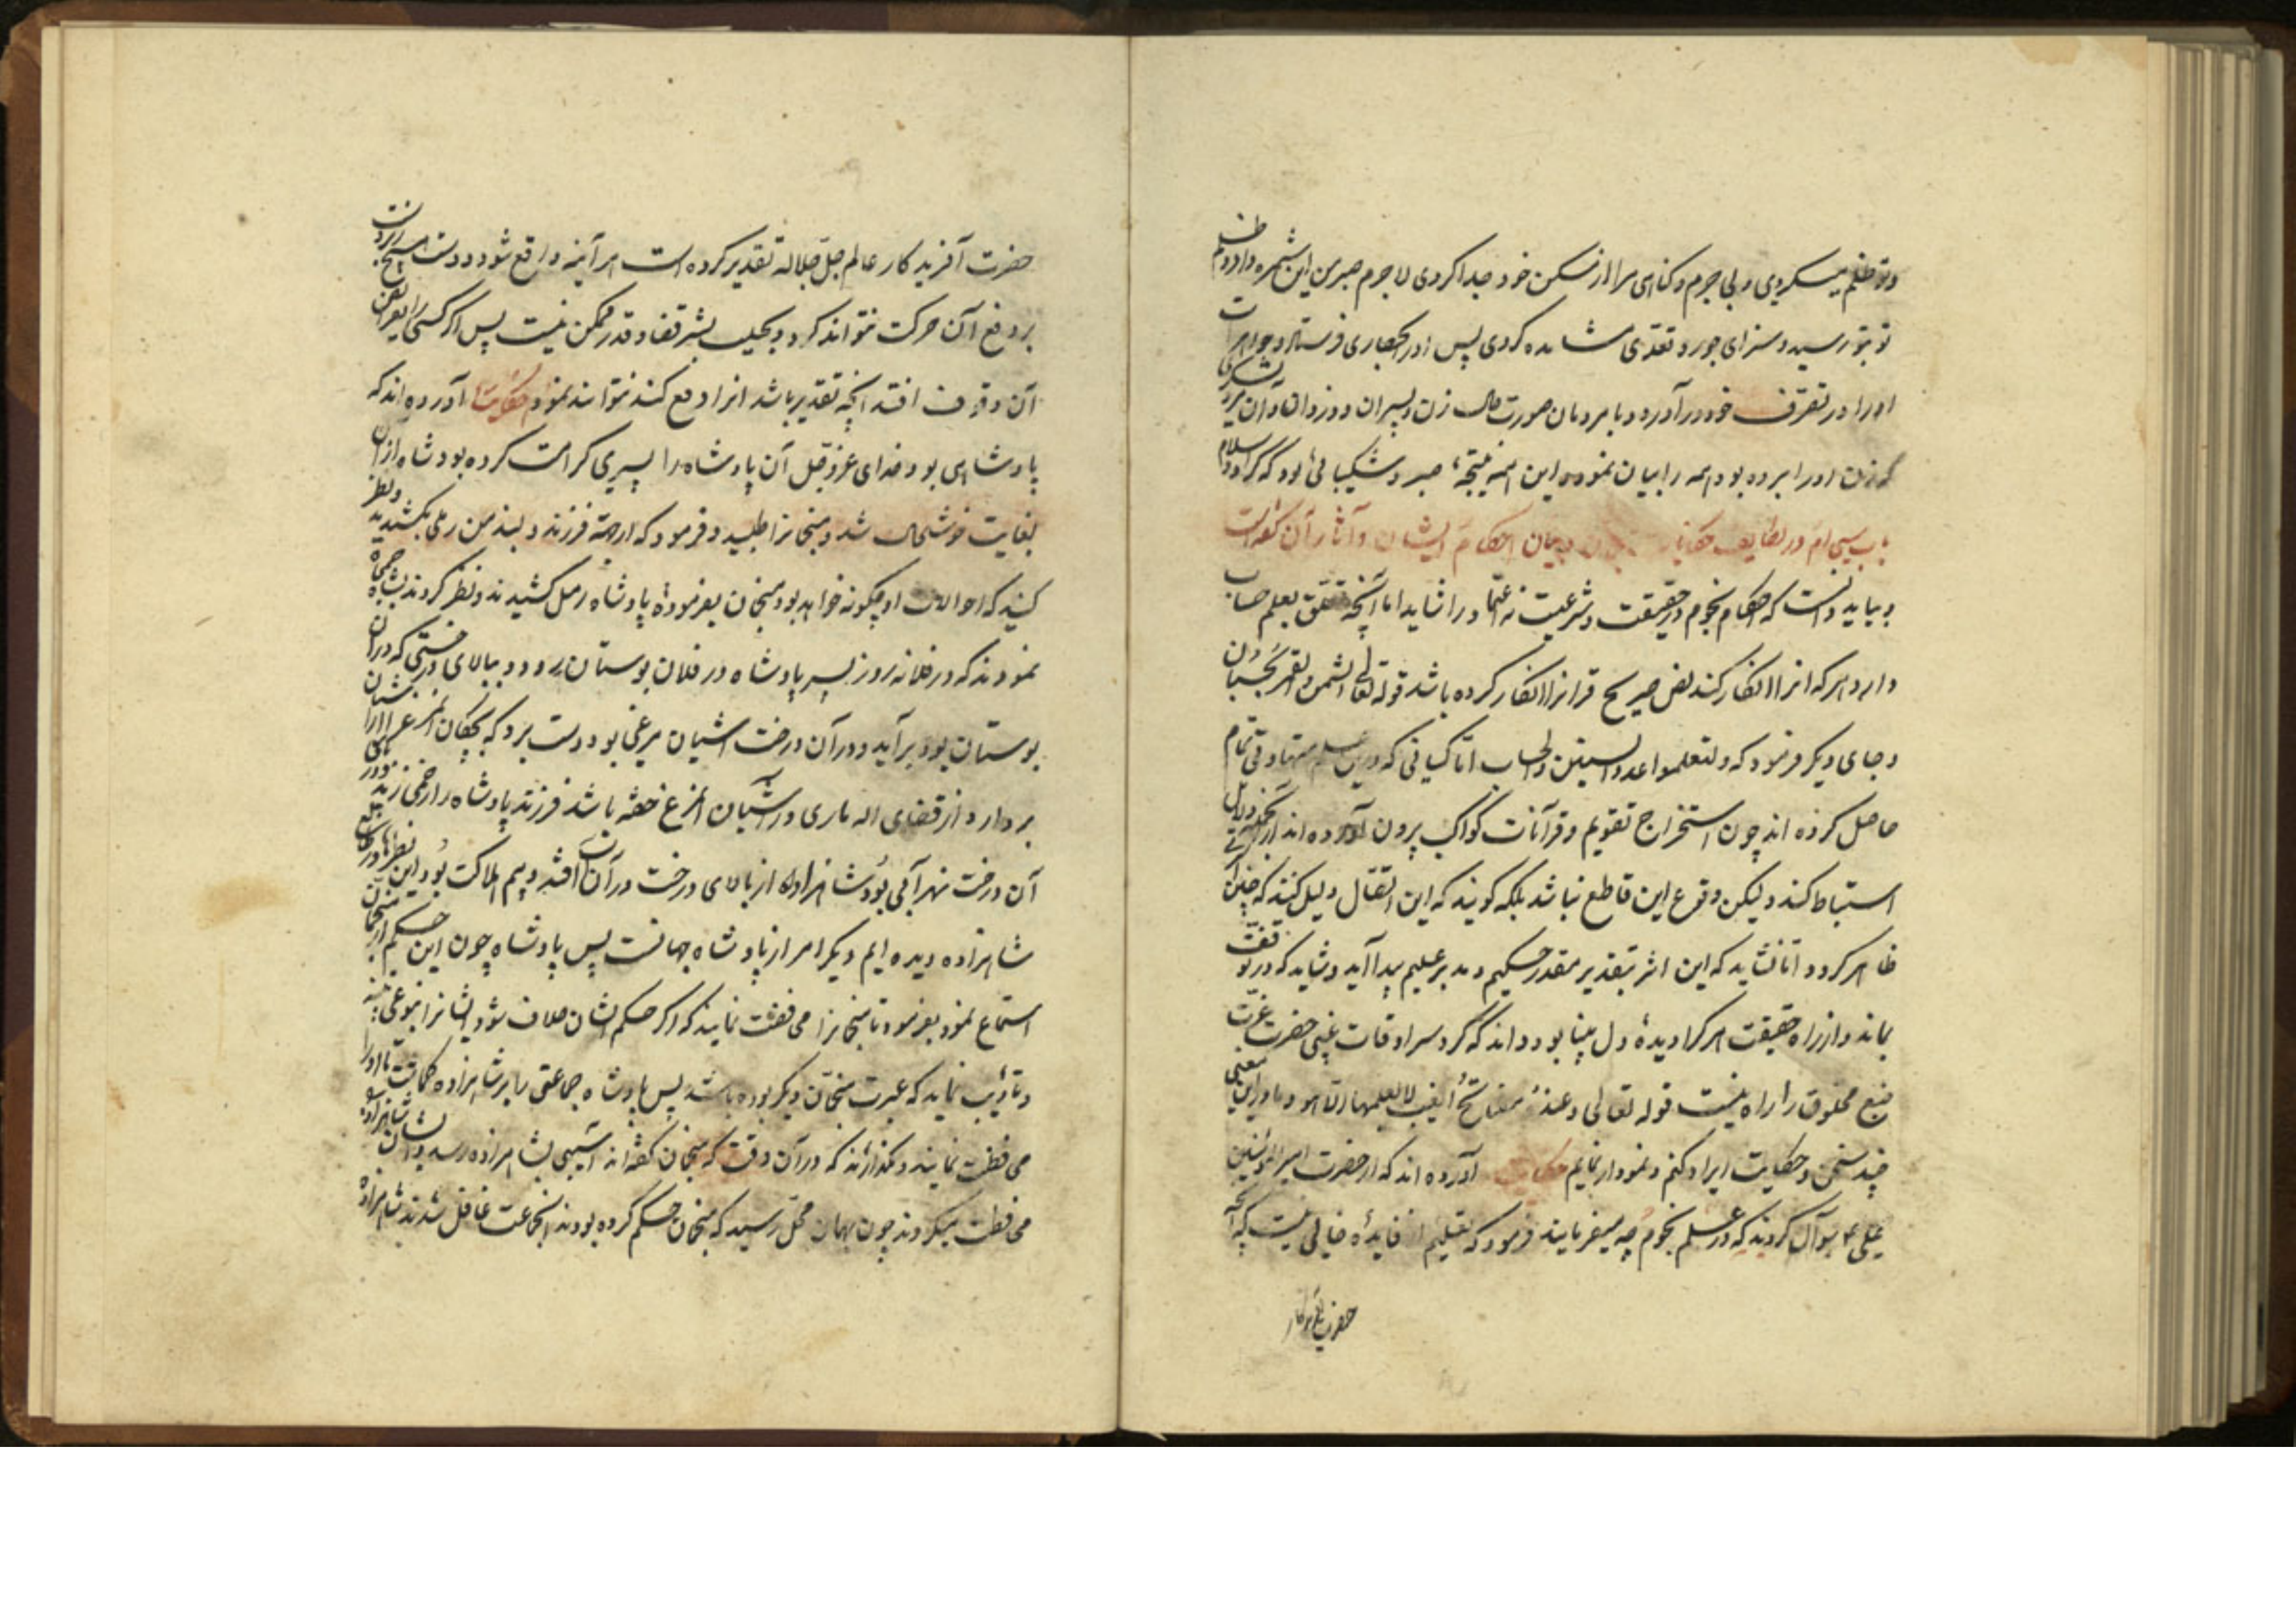 وتو ظلم میکردی و بی جرم و گناهی مرا از مسکن خود جدا کردی لاجرم صبر من این ثمره داد و ظلم
تو بتو رسید و سزای جور و تعدی مشاهده کردی پس او را بحصاری فرستاد و
او را در تصرف خود در آورد و با مردمان صورت حال زن و پسران و دزدان و آن
که زن او را برده بود همه را بیان نمود و این همه نتیجهٔ صبر و شکیبائی بود که کرد والسلام
باب سی‌ام در لطایف حکایات و بیان احکام ایشان و آثار آن گفته است
و بباید دانست که احکام نجوم در حقیقت و شرعیت نه اعتماد را شاید اما آنچه تعلق بعلم حساب
دارد هر که انرا انکار کند نص صریح قرانرا انکار کرده باشد قوله تعالی الشمس والقمر بحسبان
و جای دیگر فرمود که و لتعلموا عدد السنین والحساب اما کسانی که درین علم مهارتی تمام
حاصل کرده اند چون استخراج تقویم و قرآنات کواکب برون آورده اند از دلایل
استنباط کند و لیکن وقوع این قاطع نباشد بلکه گویند که این اتصال دلیل کند که چنین
ظاهر گردد اما نشاید که این اثر بتقدیر مقدر حکیم و مدبر علیم پیدا آید و شاید که در توقف
بماند و از راه حقیقت هر کرا دیدهٔ دل بینا بود داند که گرد سرادقات غیبی حضرت عزت
هیچ مخلوق را راه نیست قوله تعالی و عندهٔ مفاتح الغیب لا یعلمها الا هو و ما درین معنی
چند سخن و حکایت ایراد کنم و نمودار نمایم حکایت آورده اند که از حضرت امیر المؤمنین
علی ع سوآل کردند که در علم نجوم چه میفرمایند فرمود که تعلیم از فایدهٔ خالی نیست چه آنچه
حضرت آفریدکار
حضرت آفریدکار عالم جل جلاله تقدیر کرده است هر آینه واقع شود و دست هیچ
بر دفع آن حرکت نتواند کرد و بحیل بشر قضا و قدر ممکن نیست پس اگر کسی را بعض
آن وقوف افتد آنچه تقدیر باشد انرا دفع کند نتواند نمودم حکایت آورده اند که
پادشاهی بود خدای عز و جل آن پادشاه را پسری کرامت کرده بود شاه ازان
بغایت خوشحال شد و منجمانرا طلبید و فرمود که از جهة فرزند دلبند من رملی بکشیدید و نظر
کنید که احوالات او چگونه خواهد بود منجمان بفرمودهٔ پادشاه رمل کشیدند و نظر کردند
نمودند که در فلانه روز پسر پادشاه در فلان بوستان رود و ببالای درختی که دران
بوستان بود برآید و در آن درخت اشیان مرغی بود دست برد که بچگان انمرغ را
بردارد از قضای اله ماری در آشیان انمرغ خفته باشد فرزند پادشاه را زخمی زند و در
آن درخت نهر آبی بود شاهزاده از بالای درخت در آن افتد و بیم هلاکت بود این
شاهزاده دیده ایم دیگر امر از پادشاه جهانست پس پادشاه چون این حکم از منجمان
استماع نمود بفرمود تا منجمانرا محافظت نمایند که اگر حکم ایشان خلاف شود ایشانرا بنوعی
و تأدیب نماید که عبرت منجمان دیگر بوده باشد پس پادشاه جماعتی را بر شاهزاده گماشت تا او را
محافظت نمایند و نگذارند که در آن وقت که منجمان گفته اند آسیبی بشاهزاده رسد
محافظت میکردند چون بهمان محل رسید که منجمان حکم کرده بودند انجماعت غافل شدند شاهزاده